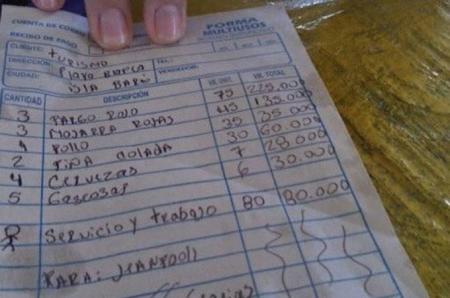 CUENTA DE COBRO
FORMA
MULTIUSOS
RECIBO DE PAGO
CLIENTE: TURISMO TEL:
DIRECCIÓN: Playa Blanca VENDEDOR:
CIUDAD: Isla Barú
CANTIDAD DESCRIPCIÓN VR. UNIT. VR. TOTAL
3 PARGO ROJO 75 225.000
3 MOJARRA ROJAS 45 135.000
1 Pollo 35 35.000
2 PIÑA COLADA 30 60.000
4 CERVEZAS 7 28.000
5 Gaseosas 6 30.000
Servicio y trabajo 80 80.000
PARA: